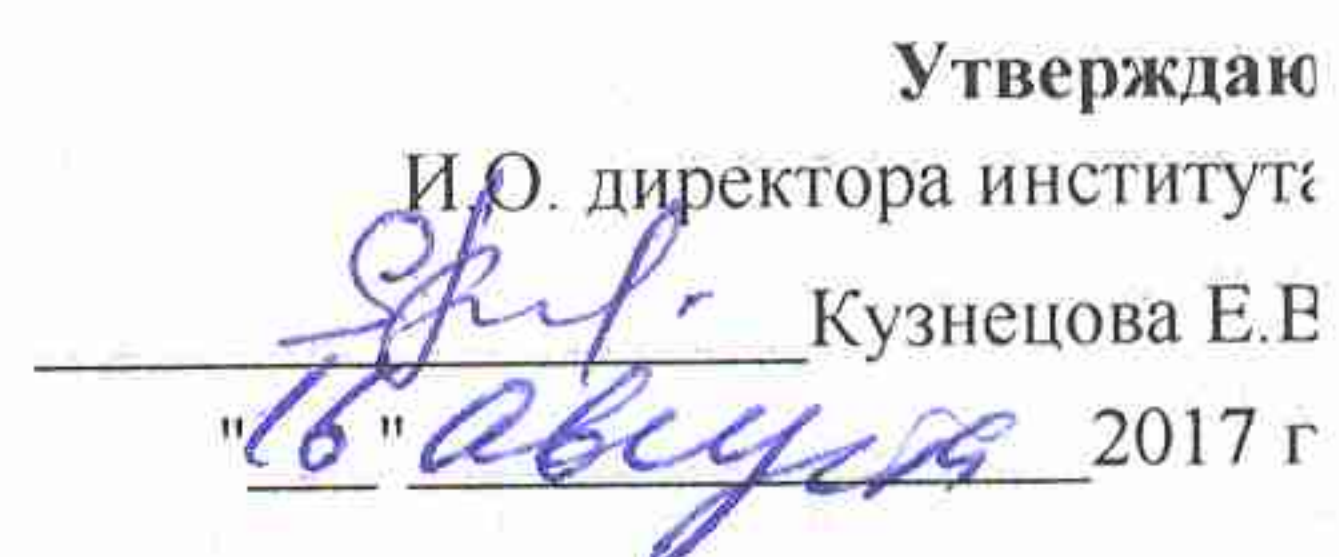 Утверждаю
И.О. директора института
Кузнецова Е.В
"16" августа 2017 г